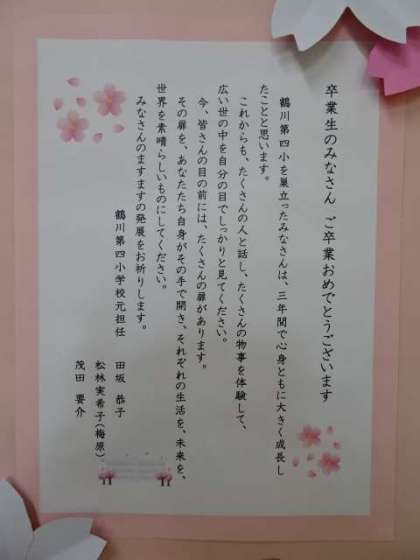 卒業生のみなさん　ご卒業おめでとうございます
鶴川第四小を巣立ったみなさんは、三年間で心身ともに大きく成長し
たことと思います。
これからも、たくさんの人と話し、たくさんの物事を体験して、
広い世の中を自分の目でしっかりと見てください。
今、皆さんの目の前には、たくさんの扉があります。
その扉を、あなたたち自身がその手で開き、それぞれの生活を、未来を、
世界を素晴らしいものにしてください。
みなさんのますますの発展をお祈りします。
鶴川第四小学校元担任　田坂　恭子
松林実希子（梅原）
茂田　要介